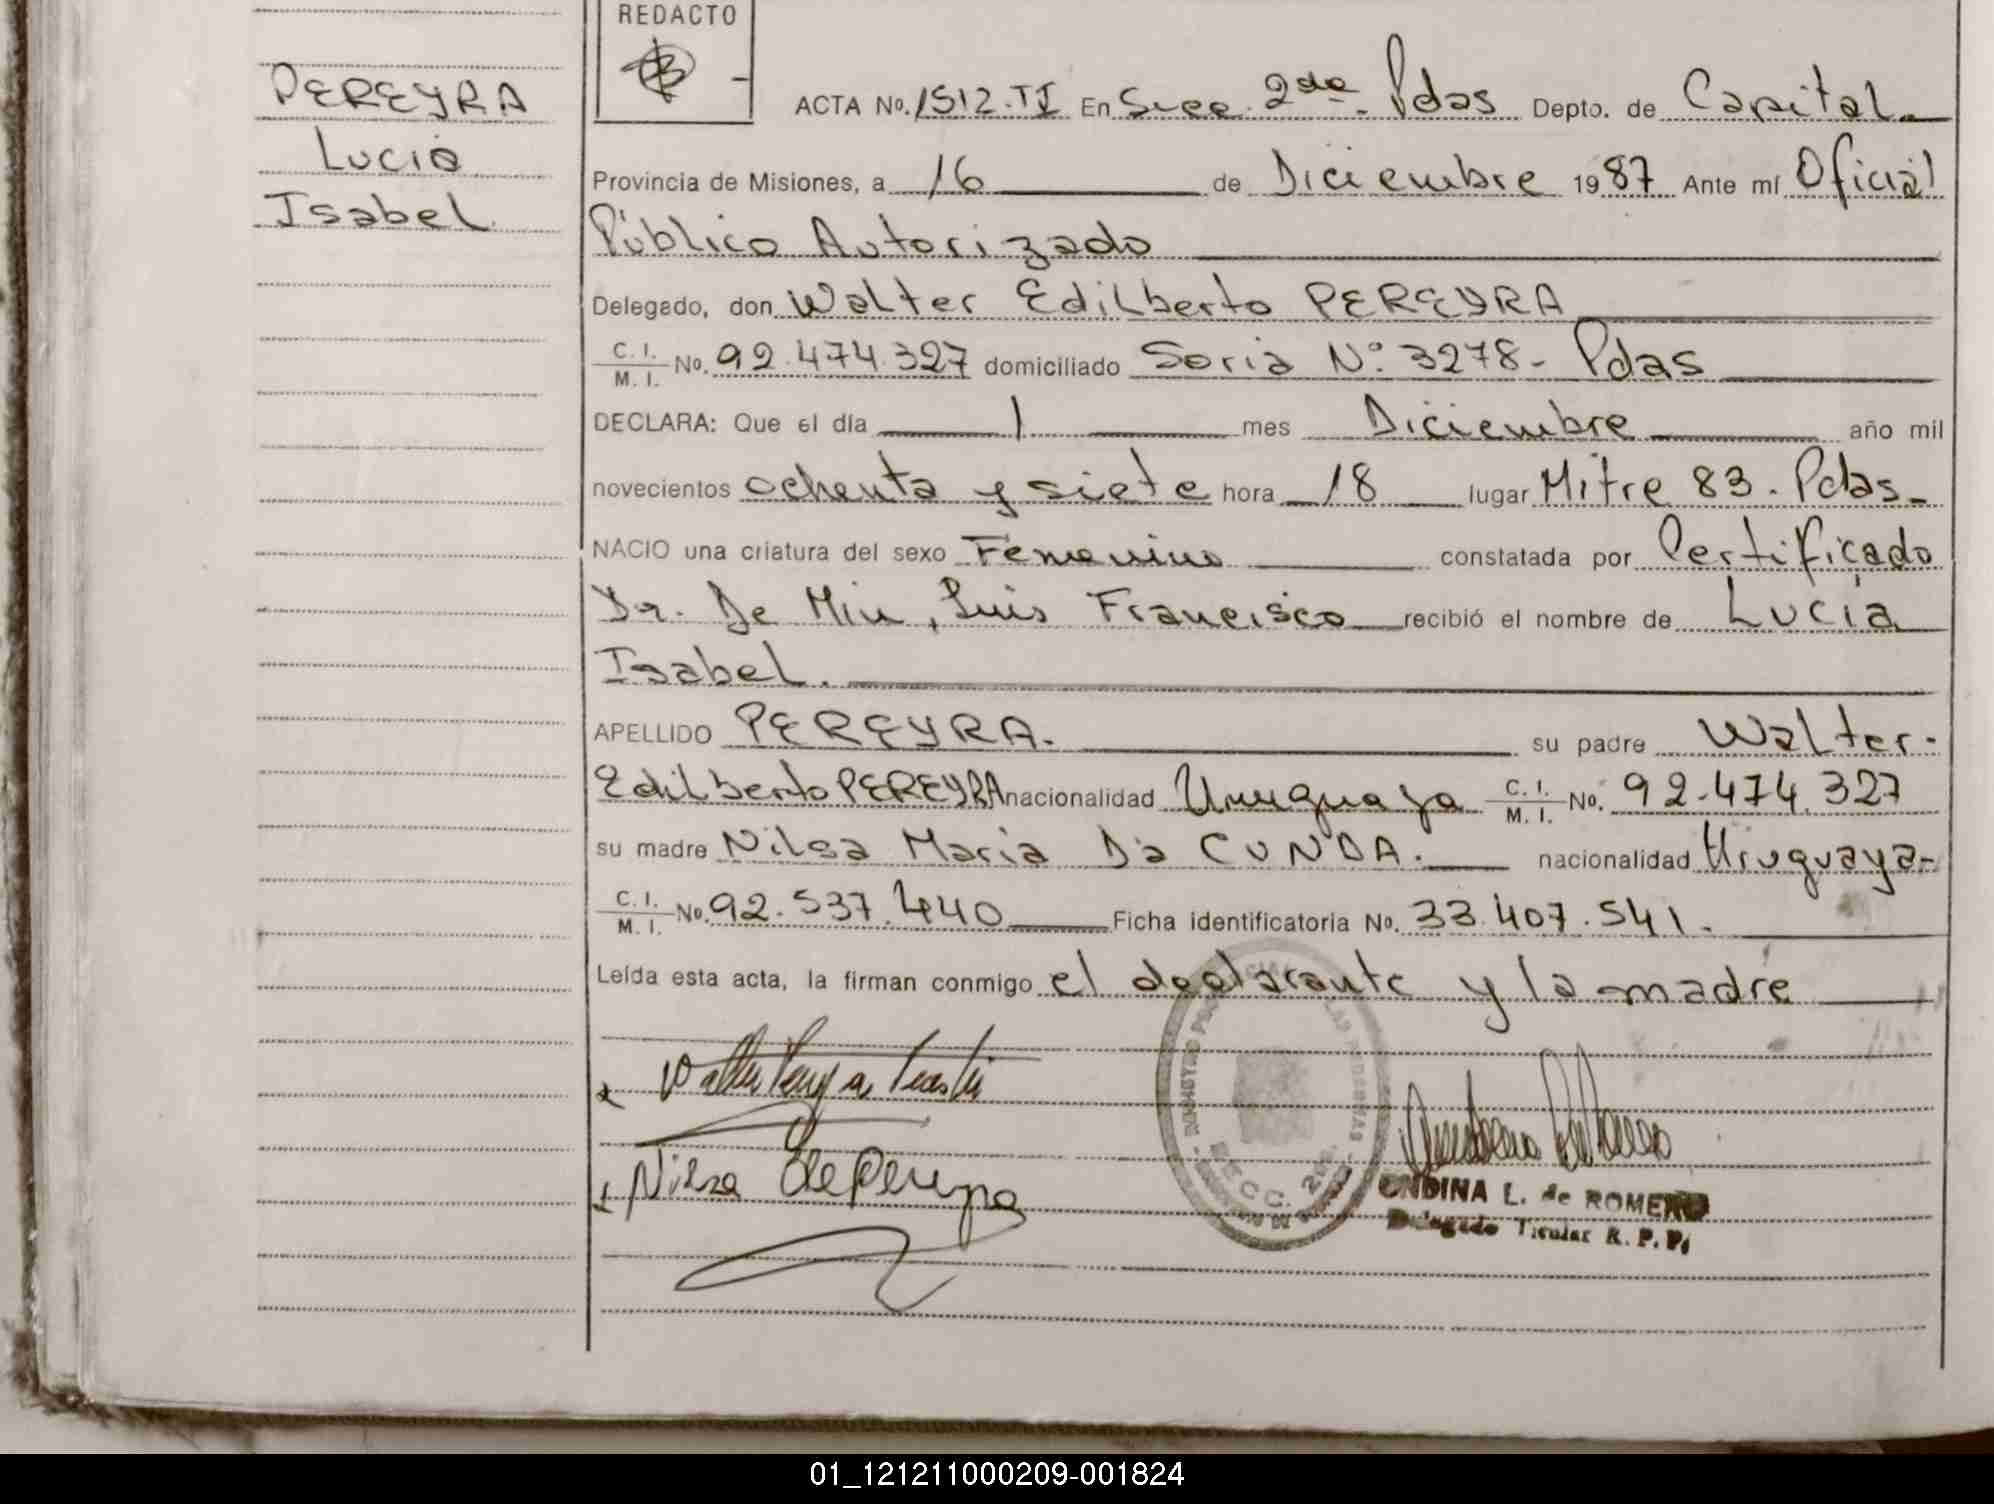 REDACTO
PEREYRA
Lucia
Isabel
ACTA No. 1512.TI En Secc. 2da Pdas Depto. de Capital
Provincia de Misiones, a 16 de Diciembre 1987 Ante mí Oficial
Público Autorizado
Delegado, don Walter Edilberto PEREYRA
C. I.
M. I. No. 92.474.327 domiciliado Soria Nº 3278- Pdas
DECLARA: Que el día 1 mes Diciembre año mil
novecientos ochenta y siete hora 18 lugar Mitre 83. Pdas-
NACIO una criatura del sexo Femenino constatada por Certificado
Dr. De Miu, Luis Francisco recibió el nombre de Lucía
Isabel.
APELLIDO PEREYRA. su padre Walter-
Edilberto PEREYRA nacionalidad Uruguaya C. I.
M. I. No. 92.474.327
su madre Nilsa Maria Da CUNDA. nacionalidad Uruguaya-
C. I.
M. I. No. 92.537.440 Ficha identificatoria No. 33.407.541.
Leída esta acta, la firman conmigo el declarante y la madre
Nilsa de Pereyra
SECC. 2da.
ONDINA L. de ROMERO
Delegado Titular R. P. P.
01_121211000209-001824